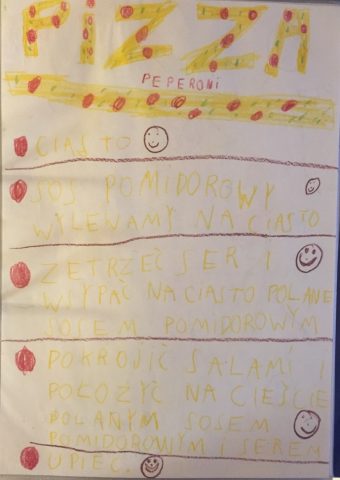 PIZZA
PEPERONI
CIASTO
SOS POMIDOROWY
WYLEWAMY NA CIASTO
ZETRZEĆ SER I
WSYPAĆ NA CIASTO POLANE
SOSEM POMIDOROWYM
POKROJIĆ SALAMI I
POŁOŻYĆ NA CIEŚCIE
POLANYM SOSEM
POMIDOROWYM I SEREM
UPIEC